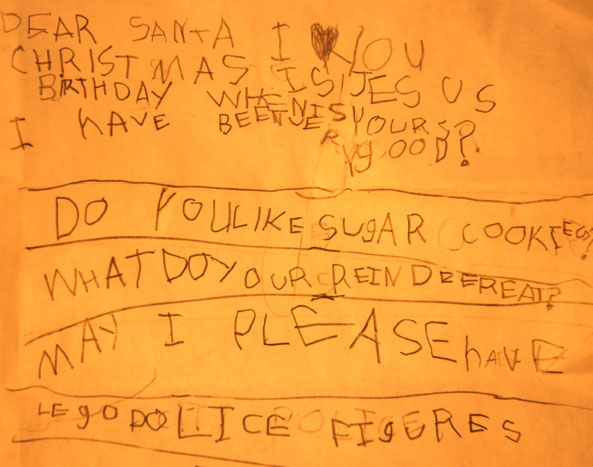 DEAR SANTA I ♥ YOU
CHRISTMAS IS JESUS
BIRTHDAY WHEN IS YOURS?
I HAVE BEEN VERY gOOD?
DO YOU LIKE SUgAR COOKIES?
WHAT DO YOUR REINDEER EAT?
MAY I PLEASE hAVE
LEgO POLLICE FIGERES